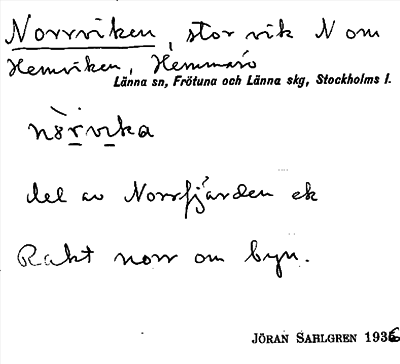 Norrviken, stor vik N om
Hemviken, Hemmarö
Länna sn, Frötuna och Länna skg, Stockholms l.
nòrvika
del av Norrfjärden ek
Rakt norr om byn.
JÖRAN SAHLGREN 1936